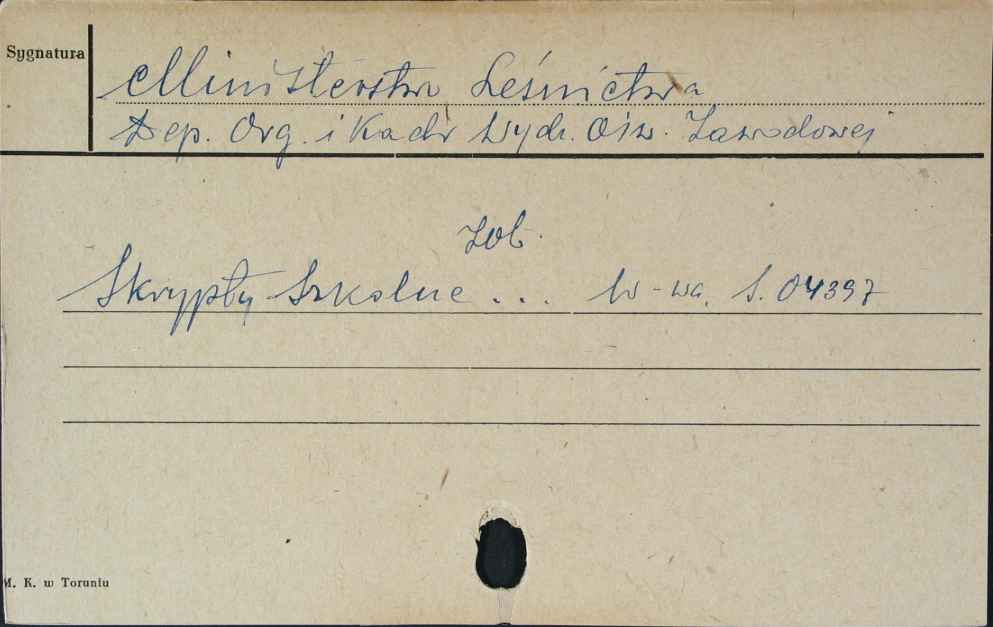 Sygnatura
Ministerstwo Leśnictwa
Dep. Org. i Kadr Wydz. Ośw. Zawodowej
Zob.
Skrypty Szkolne ... W-wa, S. 04397
M. K. w Toruniu